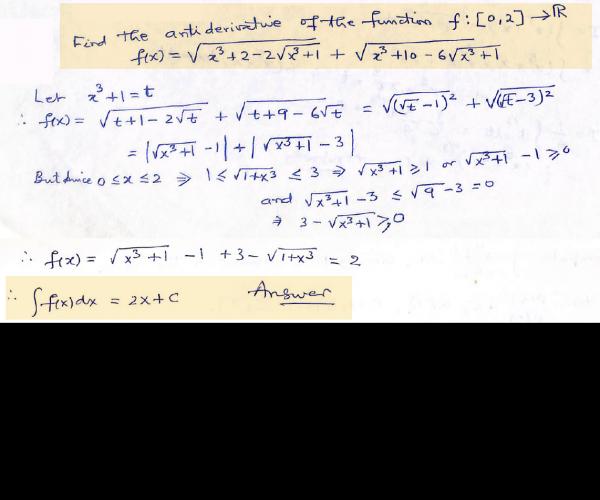 Find the antiderivative of the function f: [0,2] → ℝ
f(x) = √(x³+2-2√(x³+1)) + √(x³+10-6√(x³+1))
Let x³+1=t
∴ f(x) = √(t+1-2√t) + √(t+9-6√t) = √((√t-1)²) + √((√t-3)²)
= |√(x³+1) -1| + |√(x³+1) -3|
But since 0 ≤ x ≤ 2 ⇒ 1 ≤ √(1+x³) ≤ 3 ⇒ √(x³+1) ≥ 1 or √(x³+1) -1 ≥ 0
and √(x³+1) -3 ≤ √9 -3 = 0
⇒ 3 - √(x³+1) ≥ 0
∴ f(x) = √(x³+1) -1 + 3 - √(1+x³) = 2
∴ ∫f(x)dx = 2x+C Answer